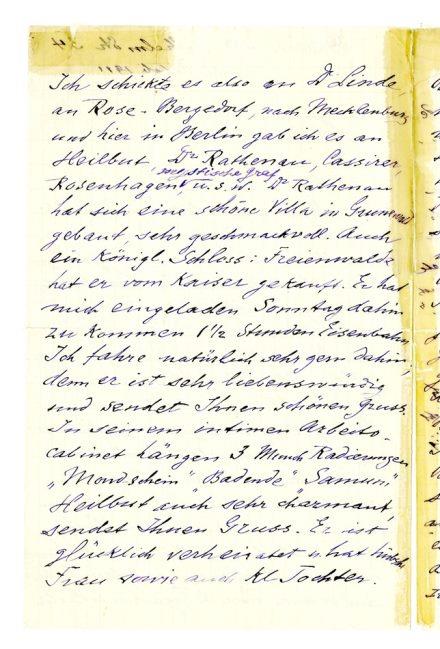 Ich schickte es also an Dr Linde,
an Rose-Bergedorf, nach Mecklenburg
und hier in Berlin gab ich es an
Heilbut Dr Rathenau, Cassirer,
mystische Graf
Rosenhagen, u.s.w. Dr Rathenau
hat sich eine schöne Villa in Grunewald
gebaut, sehr geschmackvoll. Auch
ein Königl. Schloss: Freienwalde
hat er vom Kaiser gekauft. Er hat
mich eingeladen Sonntag dahin
zu kommen 1½ Stunden Eisenbahn,
Ich fahre natürlich sehr gern dahin,
denn er ist sehr liebenswürdig
und sendet Ihnen schönen Gruss.
In seinem intimen Arbeits-
cabinet hängen 3 Munch Radierungen
„Mondschein" Badende"
Heilbut auch sehr charmant,
sendet Ihnen Gruss. Er ist
glücklich verheiratet u hat hübsche
Frau sowie auch kl Tochter.